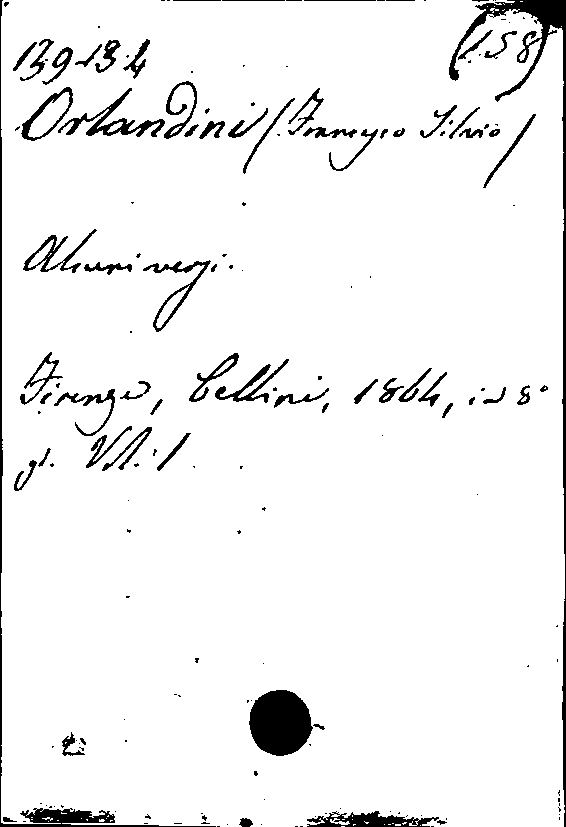 139-13-4 (158)
Orlandini (Francesco Silvio)
Alcuni versi.
Firenze, Cellini, 1864, in 8°
gr. Vol. 1